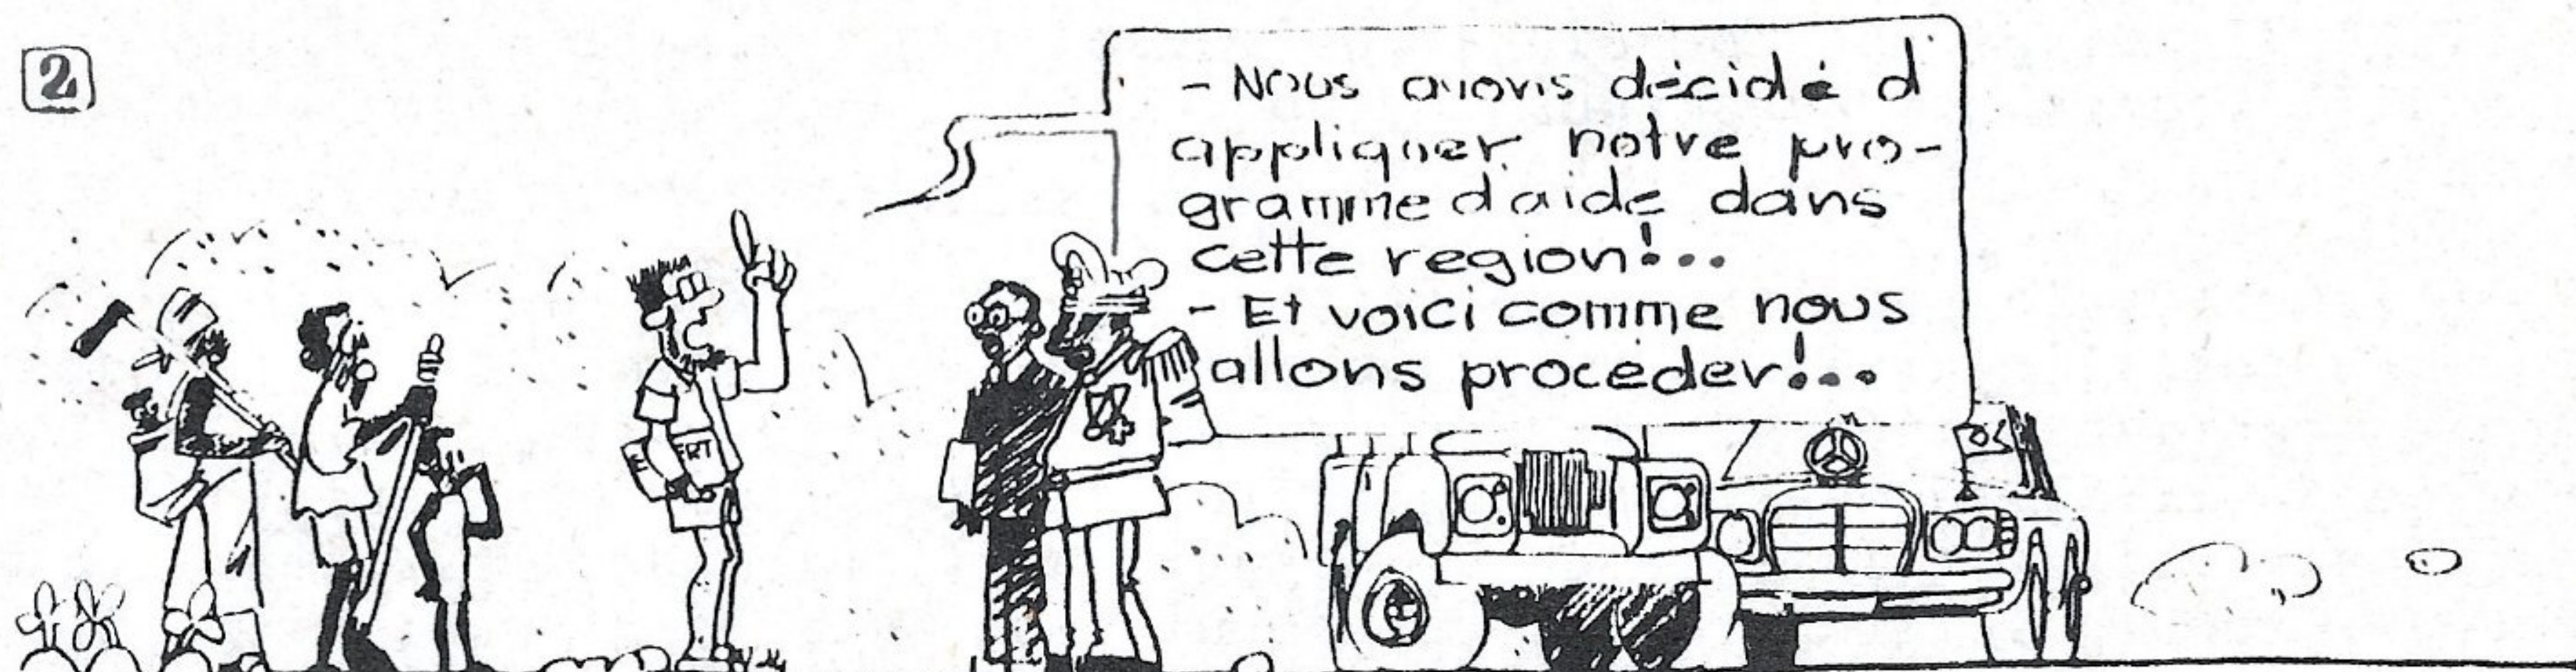 2
- Nous avons décidé d'
appliquer notre pro-
gramme d'aide dans
cette region!...
- Et voici comme nous
allons proceder!...